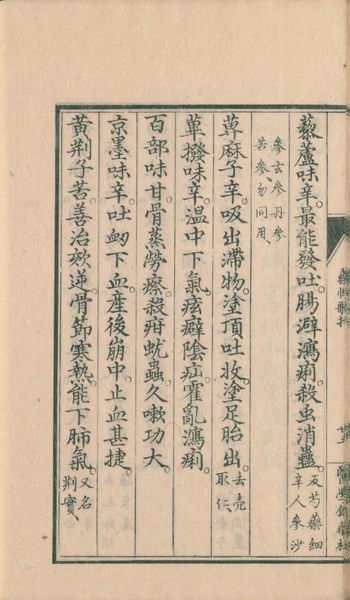 藜蘆味辛最能發吐腸澼瀉痢殺虫消蠱反芍藥細辛人參沙
參玄參丹參苦參勿同用
萆麻子辛吸出滯物塗頂吐收塗足胎出去壳取仁
蓽撥味辛溫中下氣痃癖陰疝霍亂瀉痢
百部味甘骨蒸勞瘵殺疳蚘蟲久嗽功大
京墨味辛吐衂下血產後崩中止血甚捷
黃荊子苦善治欬逆骨節寒熱能下肺氣又名荊實